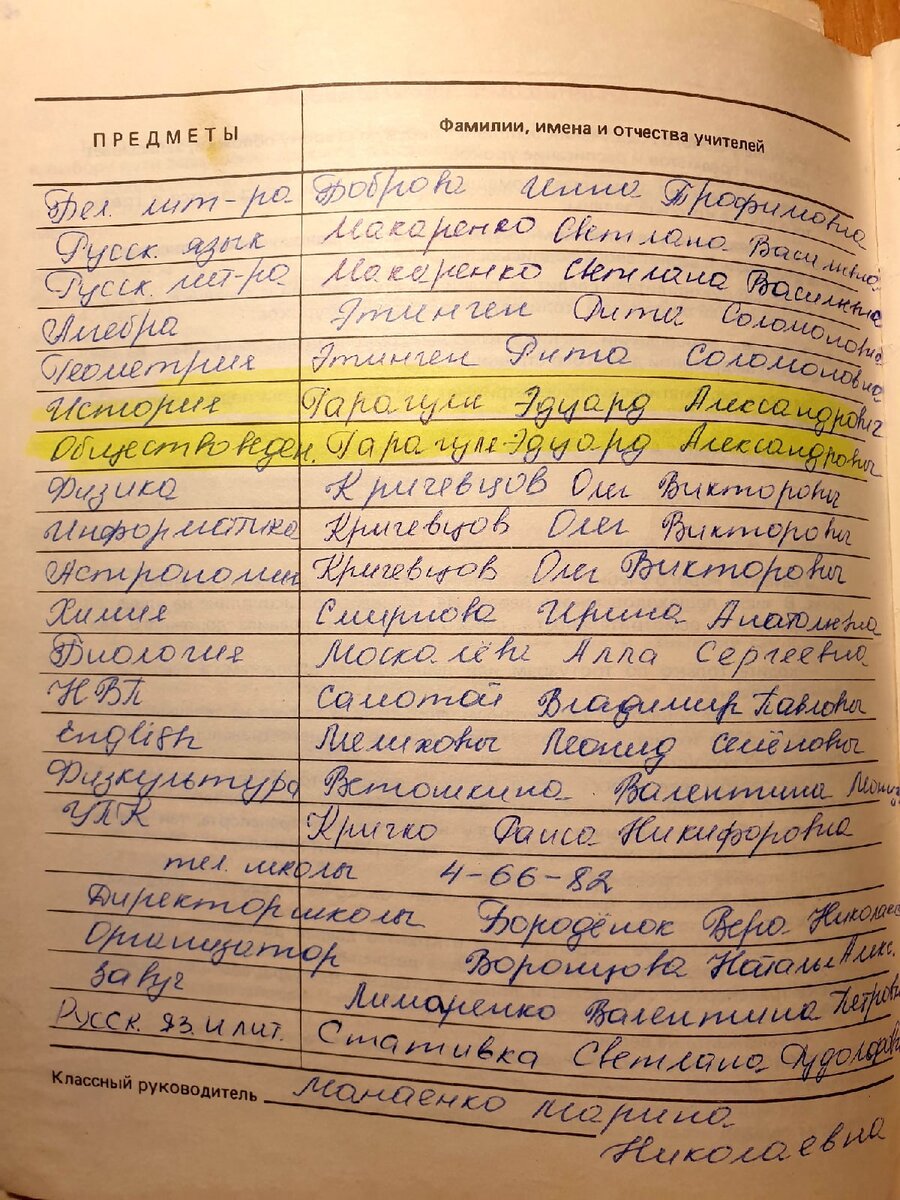 ПРЕДМЕТЫ Фамилии, имена и отчества учителей
Бел. лит-ра Боброва Инна Трофимовна
Русск. язык Макаренко Светлана Васильевна
Русск. лит-ра Макаренко Светлана Васильевна
Алгебра Этинген Рита Соломоновна
Геометрия Этинген Рита Соломоновна
История Гарагуля Эдуард Александрович
Обществоведен. Гарагуля Эдуард Александрович
Физика Кричевцов Олег Викторович
Информатика Кричевцов Олег Викторович
Астрономия Кричевцов Олег Викторович
Химия Смирнова Ирина Анатольевна
Биология Москалёва Алла Сергеевна
НВП Самотой Владимир Павлович
English Мелихович Леонид Семёнович
Физкультура Ветошкина Валентина
УПК Кричко Раиса Никифоровна
тел. школы 4-66-82
Директор школы Бороденок Вера
Организатор Воронцова Наталья Алекс.
Завуч Лимаренко Валентина
Русск. яз. и лит. Стативка Светлана
Классный руководитель Манаенко Марина
Николаевна